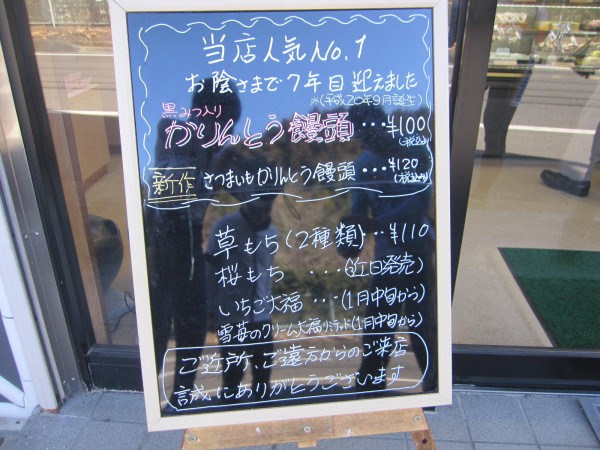 当店人気No.1
お陰さまで7年目迎えました
※(平成20年9月誕生)
黒みつ入り
かりんとう饅頭…¥100
(税込み)
新作 さつまいもかりんとう饅頭…¥120
(税込み)
草もち(2種類)…¥110
桜もち …(近日発売)
いちご大福…(1月中旬から)
雪苺のクリーム大福リミテッド(1月中旬から)
ご近所、ご遠方からのご来店
誠にありがとうございます